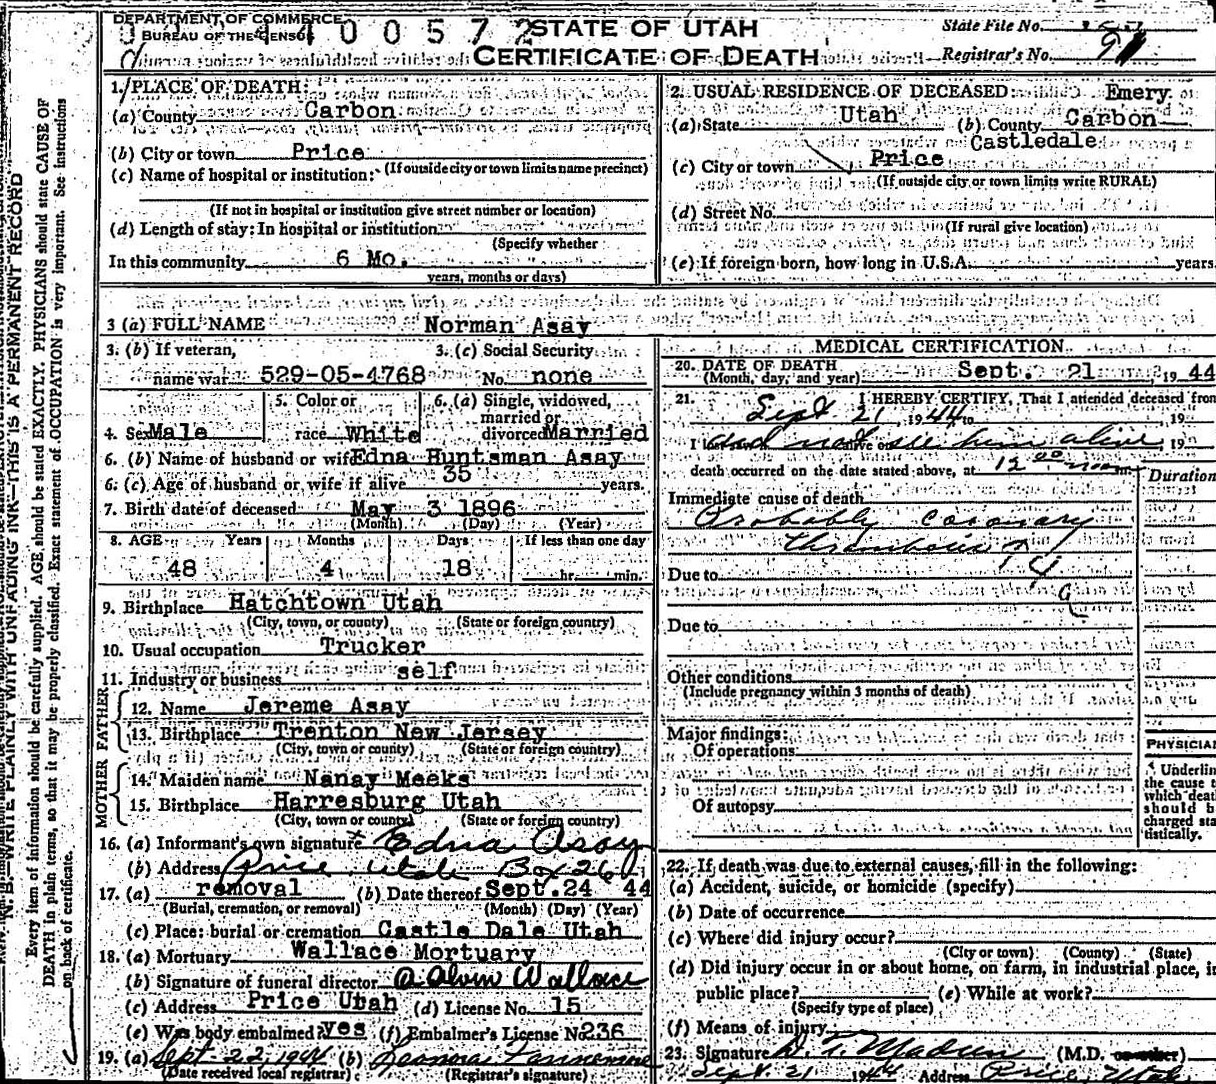 DEPARTMENT OF COMMERCE
BUREAU OF THE CENSUS
4 0 0 5 7 2
STATE OF UTAH
CERTIFICATE OF DEATH
State File No.
Registrar's No.
N. B.—WRITE PLAINLY WITH UNFADING INK—THIS IS A PERMANENT RECORD
Every item of information should be carefully supplied. AGE should be stated EXACTLY. PHYSICIANS should state CAUSE OF
DEATH in plain terms, so that it may be properly classified. Exact statement of OCCUPATION is very important. See instructions
on back of certificate.
1. PLACE OF DEATH:
(a) County Carbon
(b) City or town Price
(If outside city or town limits name precinct)
(c) Name of hospital or institution:
(If not in hospital or institution give street number or location)
(d) Length of stay: In hospital or institution
(Specify whether
In this community 6 Mo.
years, months or days)
2. USUAL RESIDENCE OF DECEASED: Emery
(a) State Utah (b) County Carbon
Castledale
(c) City or town Price
(If outside city or town limits write RURAL)
(d) Street No.
(If rural give location)
(e) If foreign born, how long in U.S.A. years
3 (a) FULL NAME Norman Asay
3. (b) If veteran, 3. (c) Social Security
name war 529-05-4768 No. none
4. Sex Male
5. Color or
race White
6. (a) Single, widowed,
married or
divorced Married
6. (b) Name of husband or wife Edna Huntsman Asay
6. (c) Age of husband or wife if alive 35 years.
7. Birth date of deceased May 3 1896
(Month) (Day) (Year)
8. AGE Years Months Days If less than one day
48 4 18 hr. min.
9. Birthplace Hatchtown Utah
(City, town, or county) (State or foreign country)
10. Usual occupation Trucker
11. Industry or business self
FATHER
12. Name Jereme Asay
13. Birthplace Trenton New Jersey
(City, town or county) (State or foreign country)
MOTHER
14. Maiden name Nanay Meeks
15. Birthplace Harresburg Utah
(City, town or county) (State or foreign country)
16. (a) Informant's own signature x Edna Asay
(b) Address Price Utah Box 26
17. (a) removal (b) Date thereof Sept. 24 44
(Burial, cremation, or removal) (Month) (Day) (Year)
(c) Place: burial or cremation Castle Dale Utah
18. (a) Mortuary Wallace Mortuary
(b) Signature of funeral director A Alvin Wallace
(c) Address Price Utah (d) License No. 15
(e) Was body embalmed? yes (f) Embalmer's License No. 236
19. (a) Sept-22 1944 (b) Leonora
(Date received local registrar) (Registrar's signature)
MEDICAL CERTIFICATION
20. DATE OF DEATH
(Month, day, and year) Sept. 21, 1944
21. I HEREBY CERTIFY, That I attended deceased from
Sept 21 1944 to 19
I did not see him alive 19
death occurred on the date stated above, at 12 00 noon
Duration
Immediate cause of death
Probably coronary
thrombosis
Due to
Due to
Other conditions
(Include pregnancy within 3 months of death)
Major findings:
Of operations
Of autopsy
PHYSICIAN
Underlin
the cause t
which deat
should b
charged sta
tistically.
22. If death was due to external causes, fill in the following:
(a) Accident, suicide, or homicide (specify)
(b) Date of occurrence
(c) Where did injury occur?
(City or town) (County) (State)
(d) Did injury occur in or about home, on farm, in industrial place, in
public place? (e) While at work?
(Specify type of place)
(f) Means of injury
23. Signature (M.D. or other)
Sept. 21 1944 Address Price, Utah